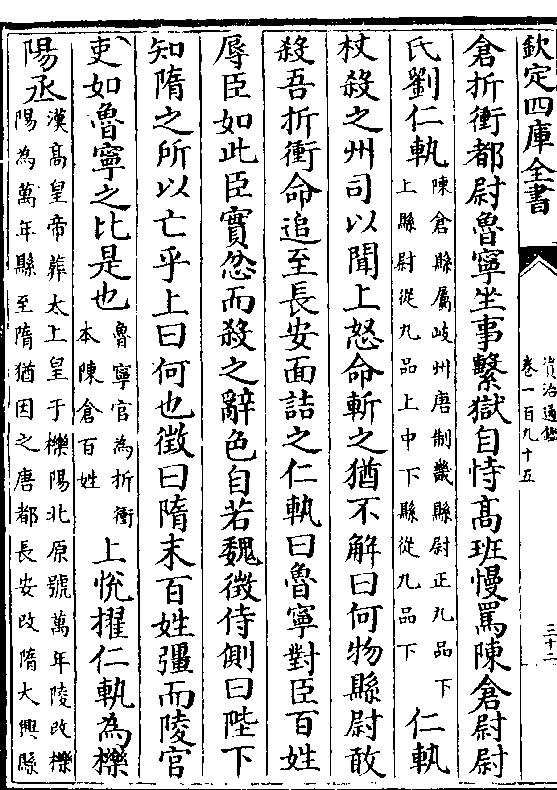 欽定四庫全書
資治通鑑
卷一百九十五
三十二
倉折衝都尉魯寧坐事繫獄自恃髙班慢罵陳倉尉尉
氏劉仁軌陳倉縣屬岐州唐制畿縣尉正九品下上縣尉從九品上中下縣從九品下仁軌
杖殺之州司以聞上怒命斬之猶不解曰何物縣尉敢
殺吾折衝命追至長安面詰之仁軌曰魯寧對臣百姓
辱臣如此臣實忿而殺之辭色自若魏徴侍側曰陛下
知隋之所以亡乎上曰何也徴曰隋末百姓彊而陵官
吏如魯寧之比是也魯寧官為折衝本陳倉百姓上悅擢仁軌為櫟
陽丞漢髙皇帝葬太上皇于櫟陽北原號萬年陵改櫟陽為萬年縣至隋猶因之唐都長安改隋大興縣